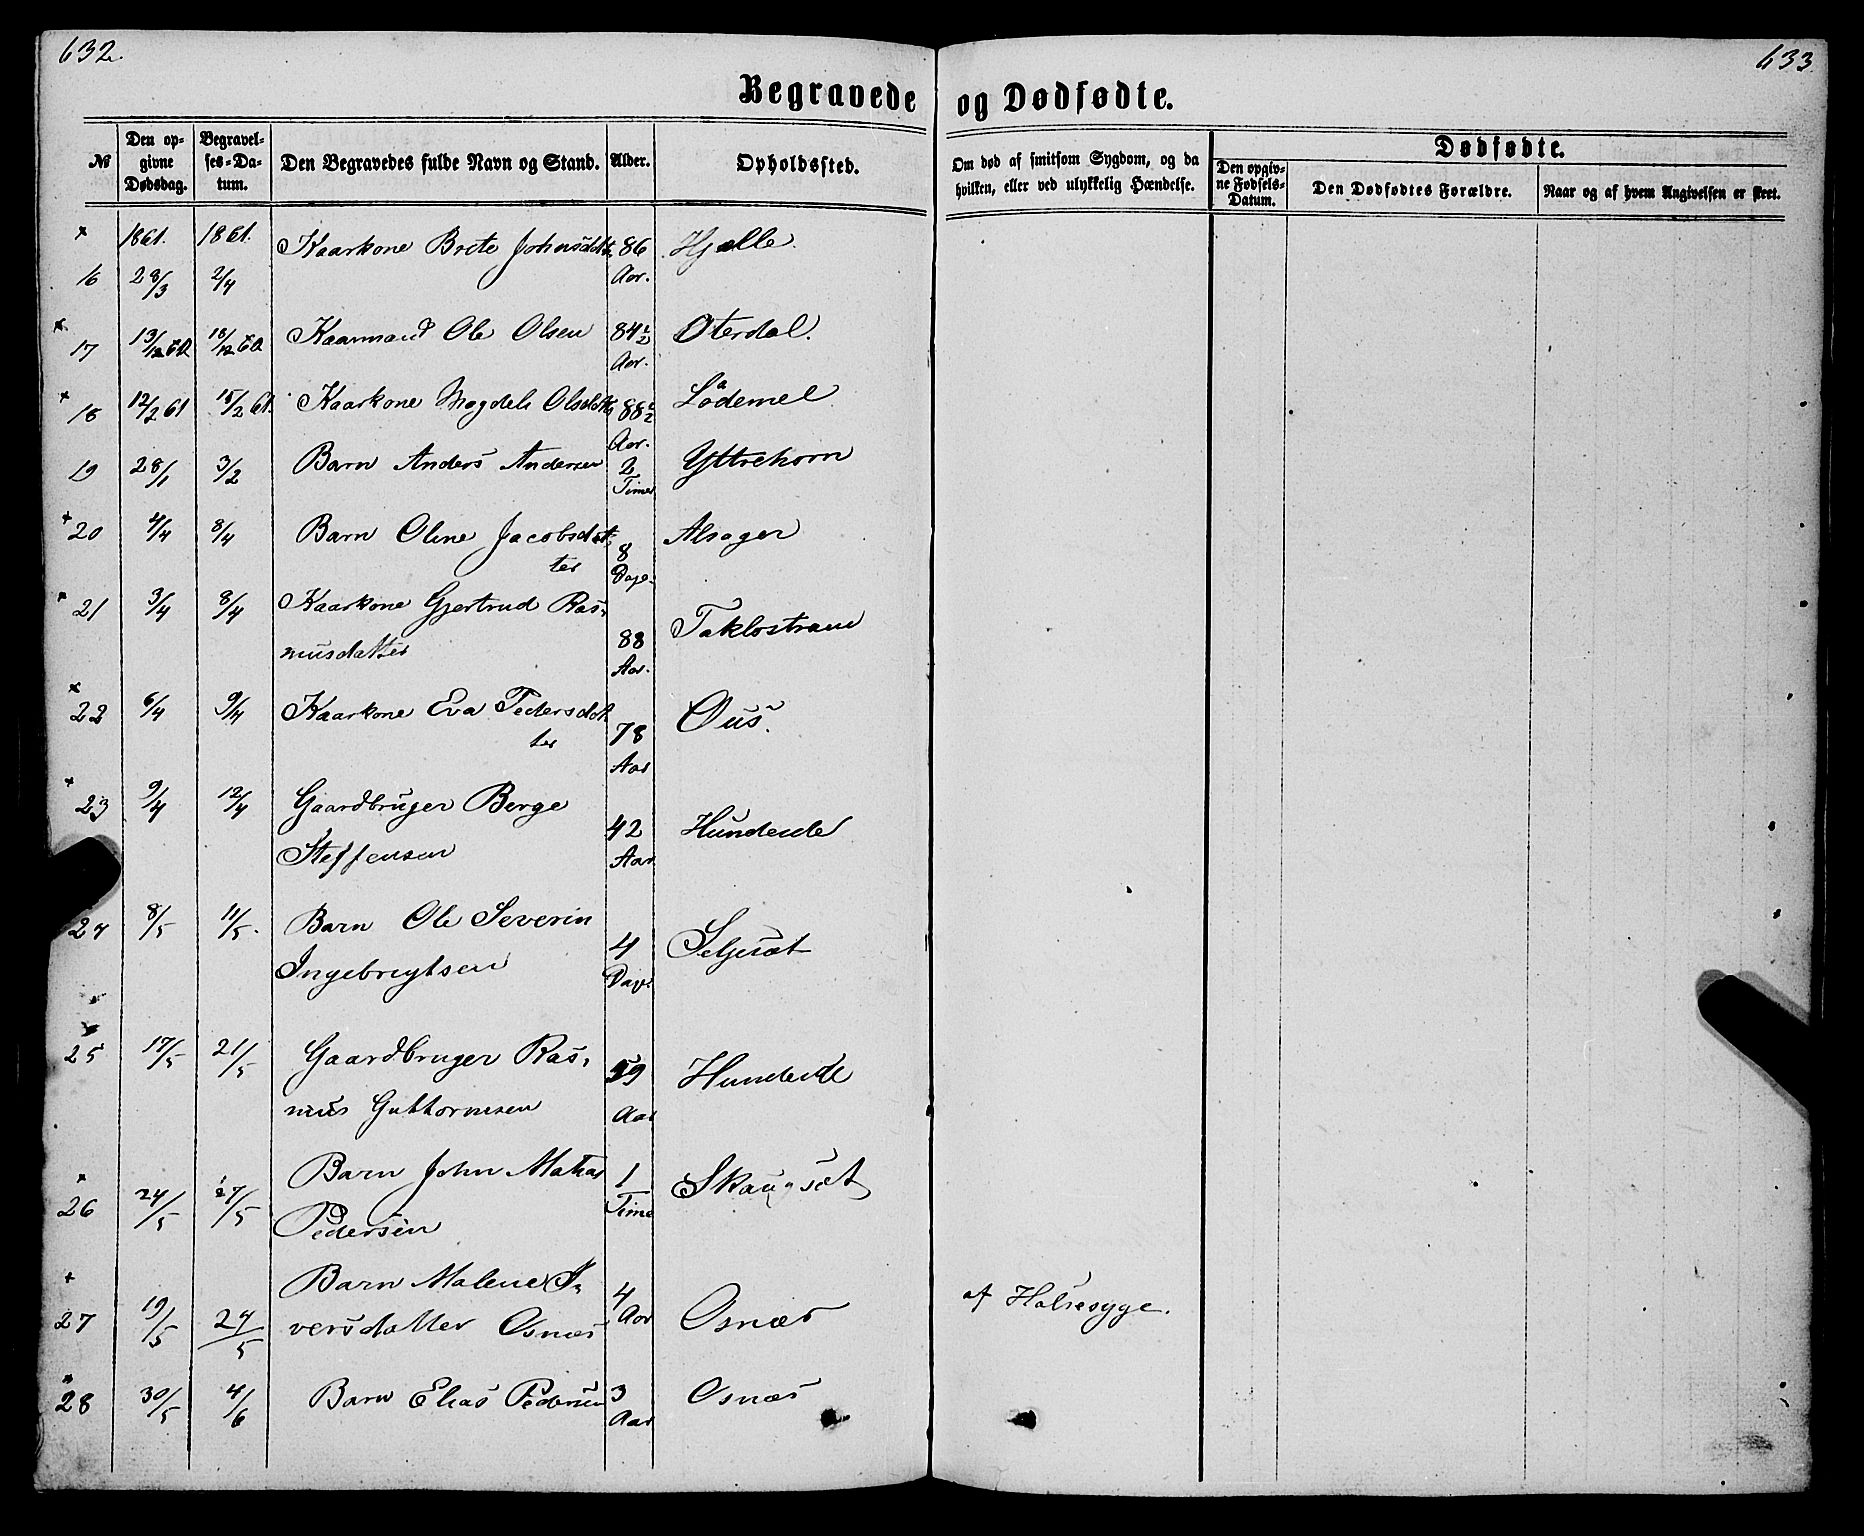 632.
633
Begravede og Dødfødte.
No
Den opgivne Dødsdag.
Begravelses-Datum.
Den Begravedes fulde Navn og Stand.
Alder.
Opholdssted.
Om død af smitsom Sygdom, og da hvilken, eller ved ulykkelig Hændelse.
Dødfødte.
Den opgivne Fødsels-Datum.
Den Dødfødtes Forældre.
Naar og af hvem Angivelsen er skeet.
1861. 1861. Kaarkone Brete Johnsdatt. 86 Hjelle
16 28/3 2/4 Aar.
17 13/12 60 18/12 60 Kaarmand Ole Olsen 84 1/2 Oterdal.
Aar.
18 12/2 61 15/2 61. Kaarkone Magdele Olsdtr 88 1/2 Lødemel
Aar.
19 28/1 3/2 Barn Anders Andersen 2 Yttrehorn
Timer
20 4/4 8/4 Barn Oline Jacobsdat- 8 Alsager
ter Dage.
21 3/4 8/4 Kaarkone Gjertrud Ras-
musdatter 88 Taklostrane
Aar.
22 6/4 9/4 Kaarkone Eva Pedersdat
ter 78 Ous.
Aar
23 9/4 12/4 Gaardbruger Berge
Steffensen 42 Hundeide
Aar
24 8/5 11/5. Barn Ole Severin
Ingebrigtsen 4 Seljesæt
Dage
25 17/5 21/5 Gaardbruger Ras-
mus Guttormsen 59 Hundeide
Aar
26 24/5 27/5 Barn John Matias 1 Skaugsæt
Pedersen Time
27 19/5 24/5 Barn Malene I-
versdatter Osnæs 4 Aar Osnæs af Halsesyge.
28 30/5 4/6 Barn Elias Pedersen 3 Osnæs
Aar